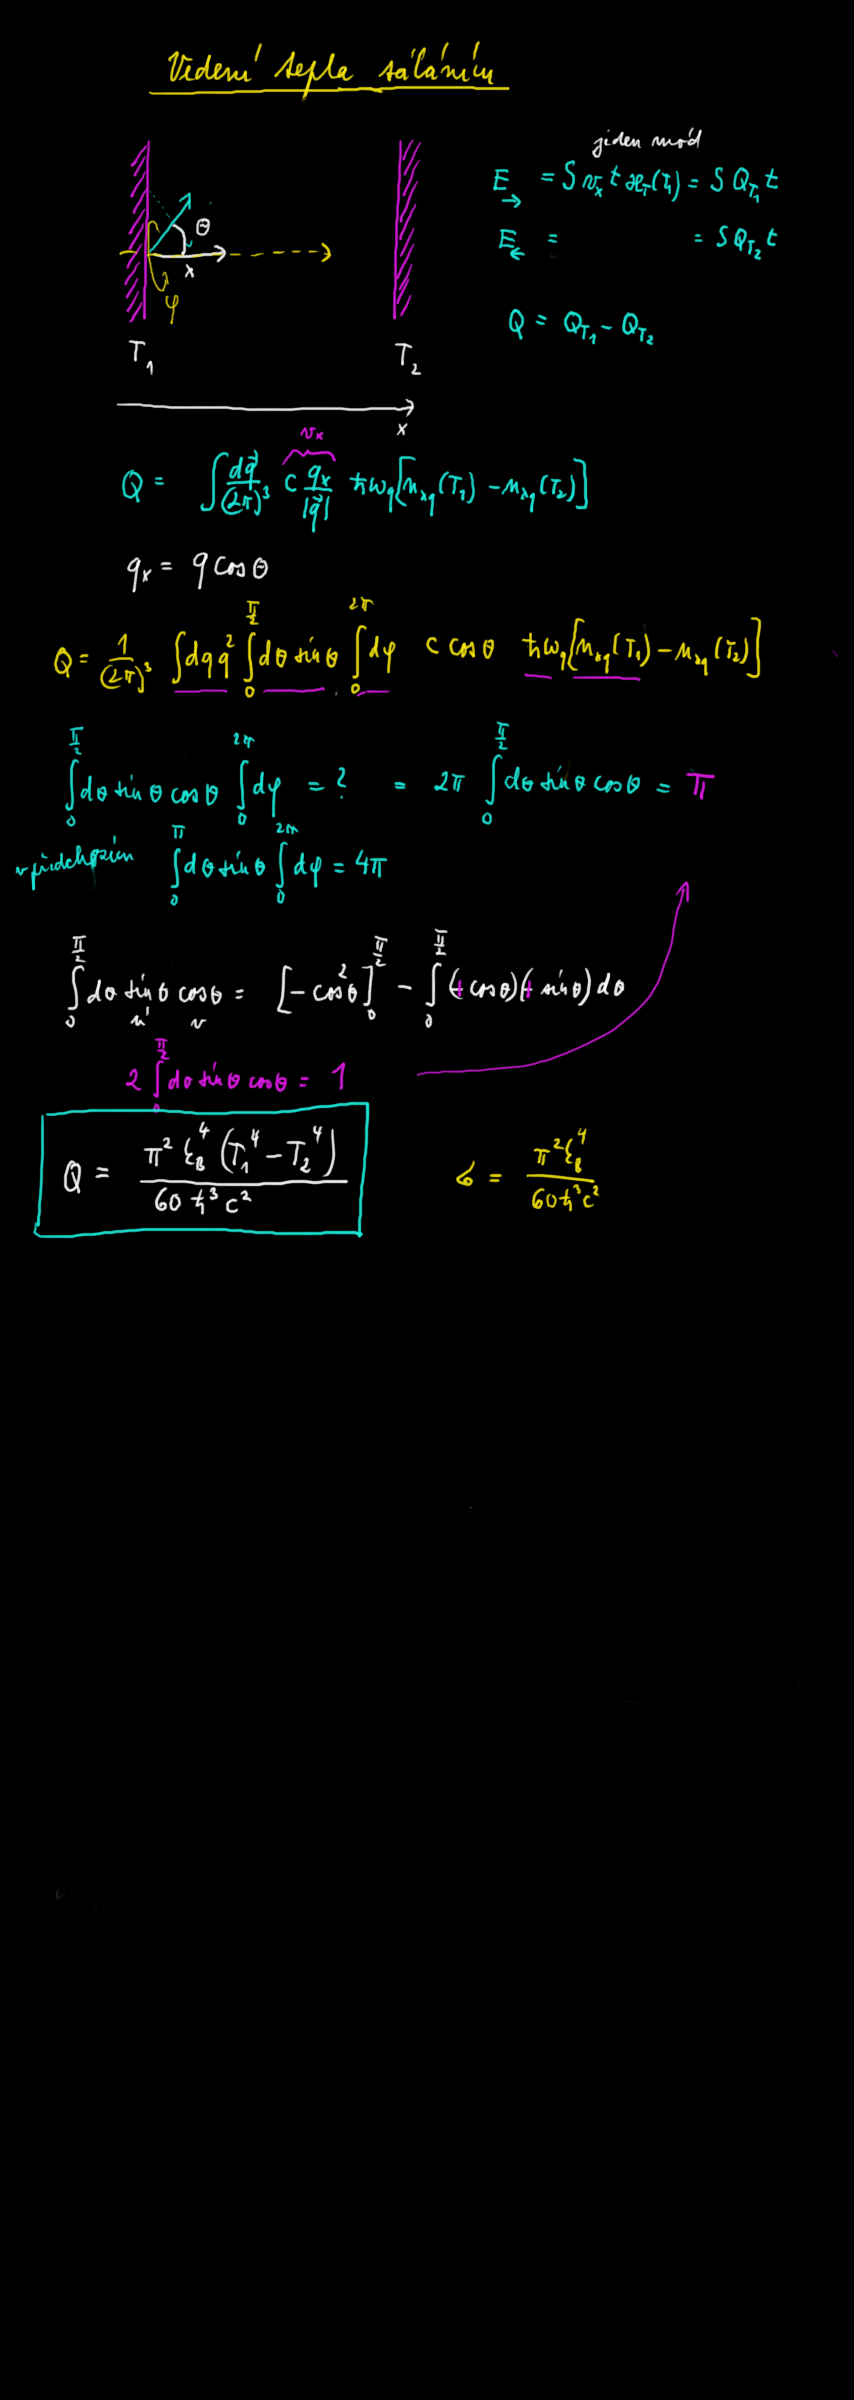 Vedení tepla sáláním
jeden mód
E→ = S vₓ t ℋ_T(T₁) = S Q_T₁ t
E← = = S Q_T₂ t
Q = Q_T₁ − Q_T₂
θ
x
φ
T₁ T₂
x
vₓ
Q = ∫ dq⃗/(2π)³ c qₓ/|q⃗| ħω_q [n_λq(T₁) − n_λq(T₂)]
qₓ = q cos θ
Q = 1/(2π)³ ∫ dq q² ∫₀^{π/2} dθ sin θ ∫₀^{2π} dφ c cos θ ħω_q [n_λq(T₁) − n_λq(T₂)]
∫₀^{π/2} dθ sin θ cos θ ∫₀^{2π} dφ = ? = 2π ∫₀^{π/2} dθ sin θ cos θ = π
v předchozím ∫₀^{π} dθ sin θ ∫₀^{2π} dφ = 4π
∫₀^{π/2} dθ sin θ cos θ = [−cos²θ]₀^{π/2} − ∫₀^{π/2} (+cos θ)(+sin θ) dθ
u' v
2 ∫₀^{π/2} dθ sin θ cos θ = 1
Q = π² k_B⁴ (T₁⁴ − T₂⁴) / 60 ħ³ c²
σ = π² k_B⁴ / 60 ħ³ c²